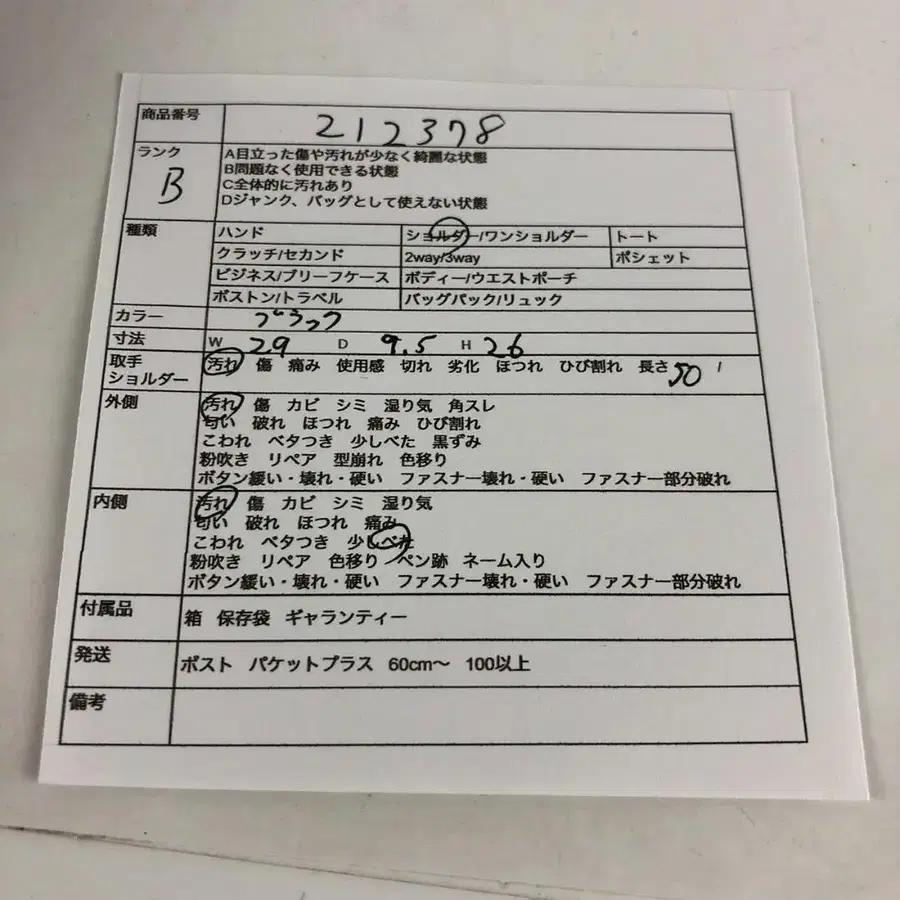 商品番号 212378
ランク B
A目立った傷や汚れが少なく綺麗な状態
B問題なく使用できる状態
C全体的に汚れあり
Dジャンク、バッグとして使えない状態
種類 ハンド ショルダー/ワンショルダー トート
クラッチ/セカンド 2way/3way ポシェット
ビジネス/ブリーフケース ボディー/ウエストポーチ
ボストン/トラベル バッグパック/リュック
カラー ブラック
寸法 W 29 D 9.5 H 26
取手 汚れ 傷 痛み 使用感 切れ 劣化 ほつれ ひび割れ 長さ 50 /
ショルダー
外側 汚れ 傷 カビ シミ 湿り気 角スレ
匂い 破れ ほつれ 痛み ひび割れ
こわれ ベタつき 少しべた 黒ずみ
粉吹き リペア 型崩れ 色移り
ボタン緩い・壊れ・硬い ファスナー壊れ・硬い ファスナー部分破れ
内側 汚れ 傷 カビ シミ 湿り気
匂い 破れ ほつれ 痛み
こわれ ベタつき 少しべた
粉吹き リペア 色移り ペン跡 ネーム入り
ボタン緩い・壊れ・硬い ファスナー壊れ・硬い ファスナー部分破れ
付属品 箱 保存袋 ギャランティー
発送 ポスト パケットプラス 60cm〜 100以上
備考